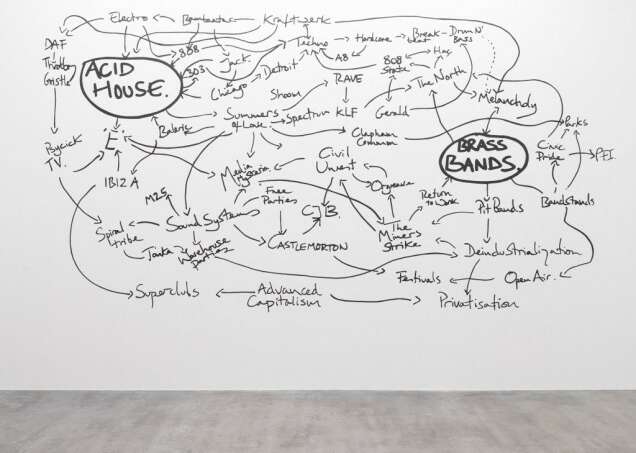 Electro
Kraftwerk
DAF
Techno
Hardcore
Break-
beat
Drum N'
Bass
Gristle
ACID
HOUSE.
303
Jack.
Detroit
808
State
Chicago
RAVE
The North
Shoom
Melancholy
Summers
of Love
Spectrum
KLF
Gerald
Balearic
'E'.
Clapham
Common
BRASS
BANDS.
Parks
Civic
Pride
PFI.
Psychick
TV.
Media
Hysteria.
Civil
Unrest
Orgreave
IBIZA
M25
Free
Parties
C.J.B.
Return
To Work
Bandstands
Pit Bands
Sound Systems
Spiral
Tribe
Tonka
Warehouse
Parties
CASTLEMORTON
The
Miners
Strike
Deindustrialization
Festivals
Open Air.
Superclubs
Advanced
Capitalism
Privatisation